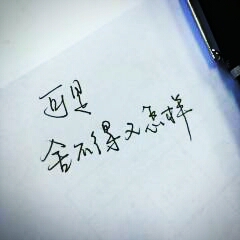 可是
舍不得又怎样